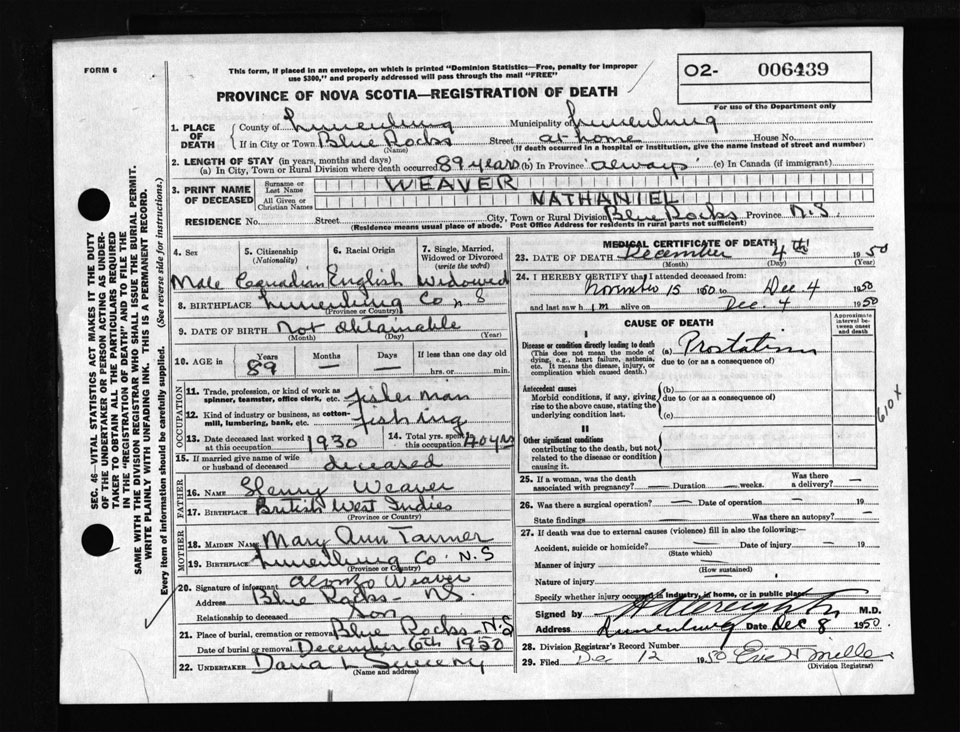 FORM 6
This form, if placed in an envelope, on which is printed "Dominion Statistics—Free, penalty for improper
use $300," and properly addressed will pass through the mail "FREE"
02- 006439
PROVINCE OF NOVA SCOTIA—REGISTRATION OF DEATH
For use of the Department only
1. PLACE OF DEATH
County of Lunenburg Municipality of Lunenburg
If in City or Town Blue Rocks Street at home House No.
(Name) (If death occurred in a hospital or institution, give the name instead of street and number)
2. LENGTH OF STAY (in years, months and days)
(a) In City, Town or Rural Division where death occurred 89 years (b) In Province always (c) In Canada (if immigrant)
3. PRINT NAME OF DECEASED
Surname or Last Name WEAVER
All Given or Christian Names NATHANIEL
RESIDENCE No. Street City, Town or Rural Division Blue Rocks Province N.S.
(Residence means usual place of abode. Post Office Address for residents in rural parts not sufficient)
4. Sex 5. Citizenship (Nationality) 6. Racial Origin 7. Single, Married, Widowed or Divorced (write the word)
Male Canadian English Widowed
8. BIRTHPLACE Lunenburg Co N S
(Province or Country)
9. DATE OF BIRTH Not Obtainable
(Month) (Day) (Year)
10. AGE in Years Months Days If less than one day old
89 — — hrs. or min.
OCCUPATION
11. Trade, profession, or kind of work as spinner, teamster, office clerk, etc. fisherman
12. Kind of industry or business, as cotton-mill, lumbering, bank, etc. fishing
13. Date deceased last worked at this occupation 1930 14. Total yrs. spent in this occupation 40 yrs
15. If married give name of wife or husband of deceased deceased
FATHER
16. NAME Henry Weaver
17. BIRTHPLACE British West Indies
(Province or Country)
MOTHER
18. MAIDEN NAME Mary Ann Tanner
19. BIRTHPLACE Lunenburg Co. N.S
(Province or Country)
20. Signature of informant Alonzo Weaver
Address Blue Rocks - N.S.
Relationship to deceased Son
21. Place of burial, cremation or removal Blue Rocks - N.S
Date of burial or removal December 6th 1950
22. UNDERTAKER L
(Name and address)
MEDICAL CERTIFICATE OF DEATH
23. DATE OF DEATH December 4th 1950
(Month) (Day) (Year)
24. I HEREBY CERTIFY that I attended deceased from:
November 15 1950 to Dec. 4 1950
and last saw him alive on Dec. 4 1950
CAUSE OF DEATH
Approximate interval between onset and death
I
Disease or condition directly leading to death (a)
(This does not mean the mode of dying, e.g., heart failure, asthenia, etc. It means the disease, injury, or complication which caused death.)
due to (or as a consequence of)
Antecedent causes (b)
Morbid conditions, if any, giving rise to the above cause, stating the underlying condition last.
due to (or as a consequence of)
(c)
610 x
II
Other significant conditions contributing to the death, but not related to the disease or condition causing it.
25. If a woman, was the death associated with pregnancy? — Duration — weeks. Was there a delivery? —
26. Was there a surgical operation? — Date of operation — 19
State findings — Was there an autopsy? —
27. If death was due to external causes (violence) fill in also the following:—
Accident, suicide or homicide? — Date of injury — 19
(State which)
Manner of injury —
(How sustained)
Nature of injury
Specify whether injury occurred in industry, in home, or in public place
Signed by M.D.
Address Lunenburg Date Dec 8 1950
28. Division Registrar's Record Number
29. Filed Dec 12 1950
(Division Registrar)
SEC. 46—VITAL STATISTICS ACT MAKES IT THE DUTY
OF THE UNDERTAKER OR PERSON ACTING AS UNDER-
TAKER TO OBTAIN ALL THE PARTICULARS REQUIRED
IN THE "REGISTRATION OF DEATH" AND TO FILE THE
SAME WITH THE DIVISION REGISTRAR WHO SHALL ISSUE THE BURIAL PERMIT.
WRITE PLAINLY WITH UNFADING INK. THIS IS A PERMANENT RECORD.
Every item of information should be carefully supplied. (See reverse side for instructions.)